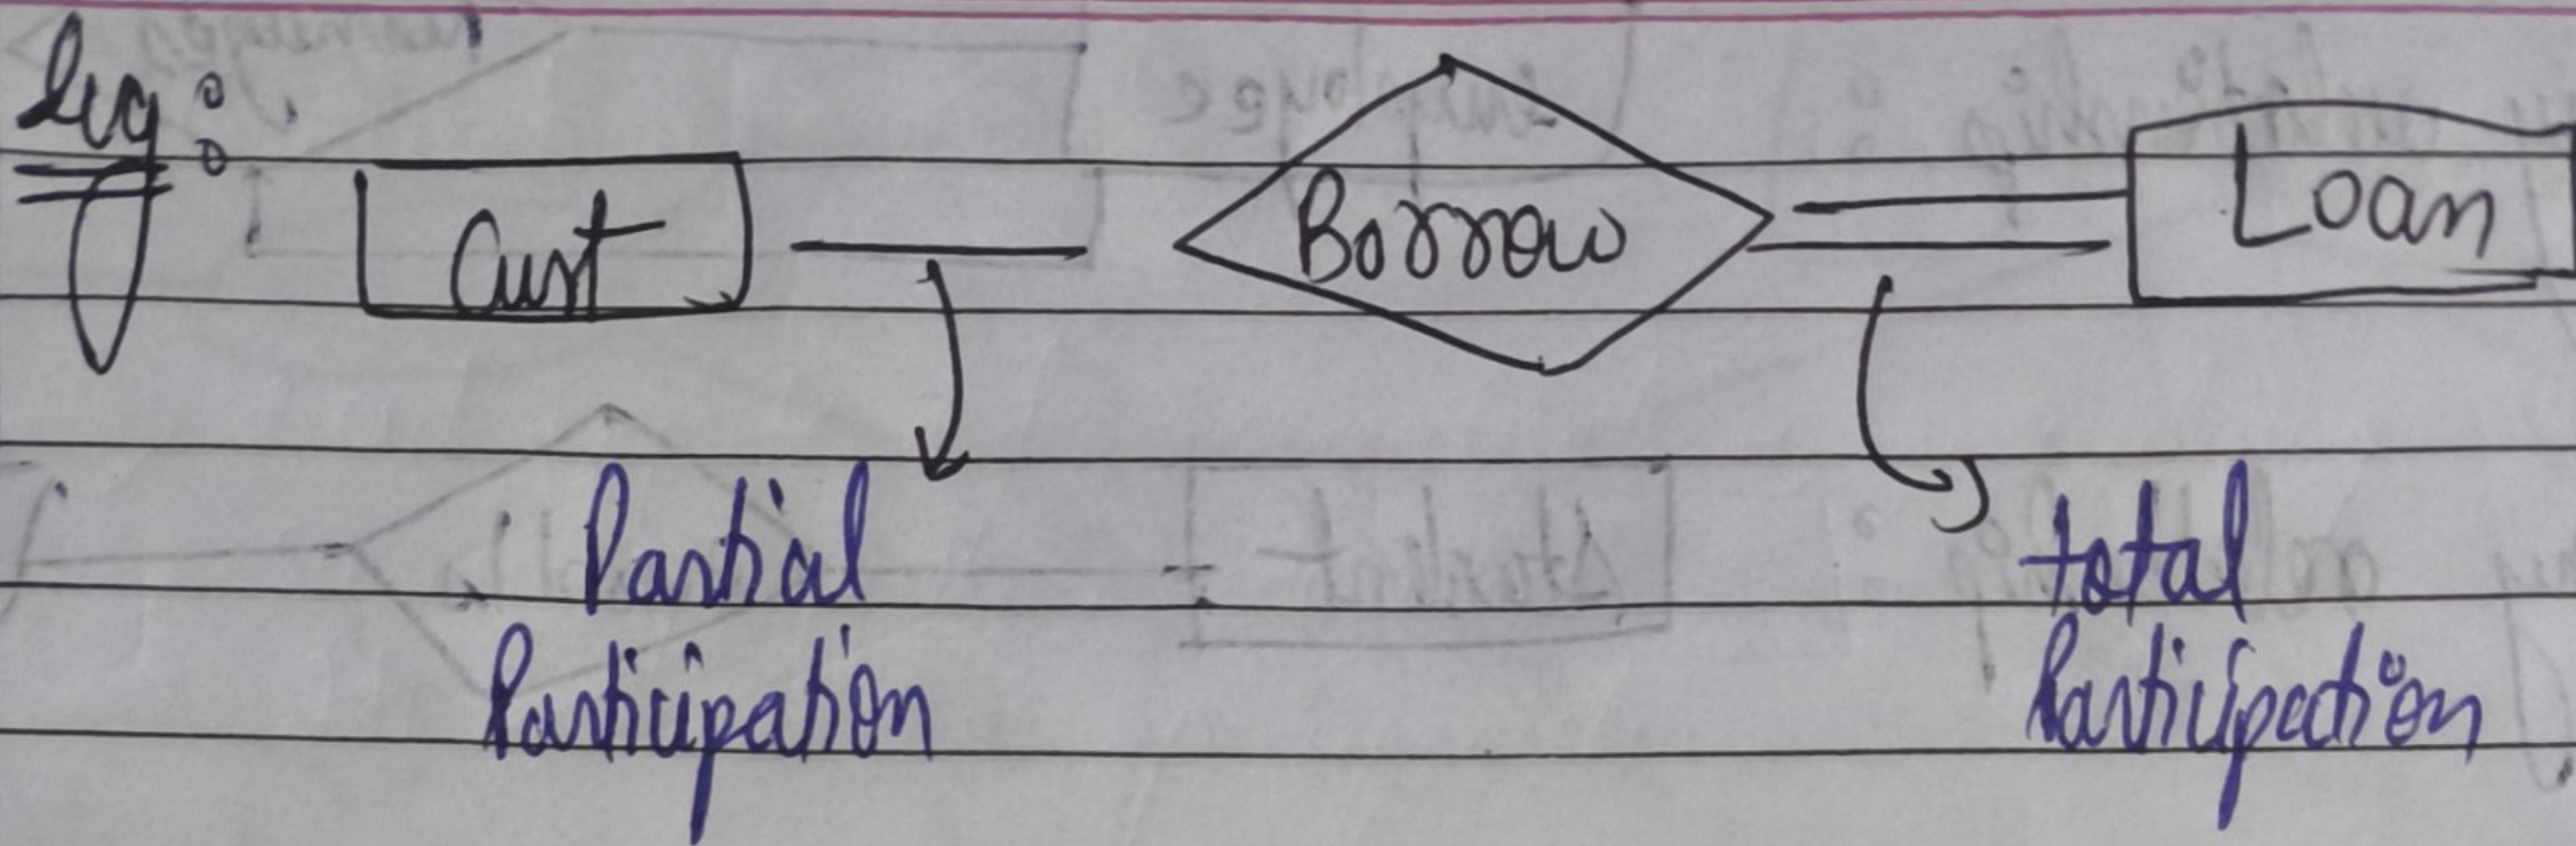 eg:
Cust Borrow Loan
Partial total
Participation Participation